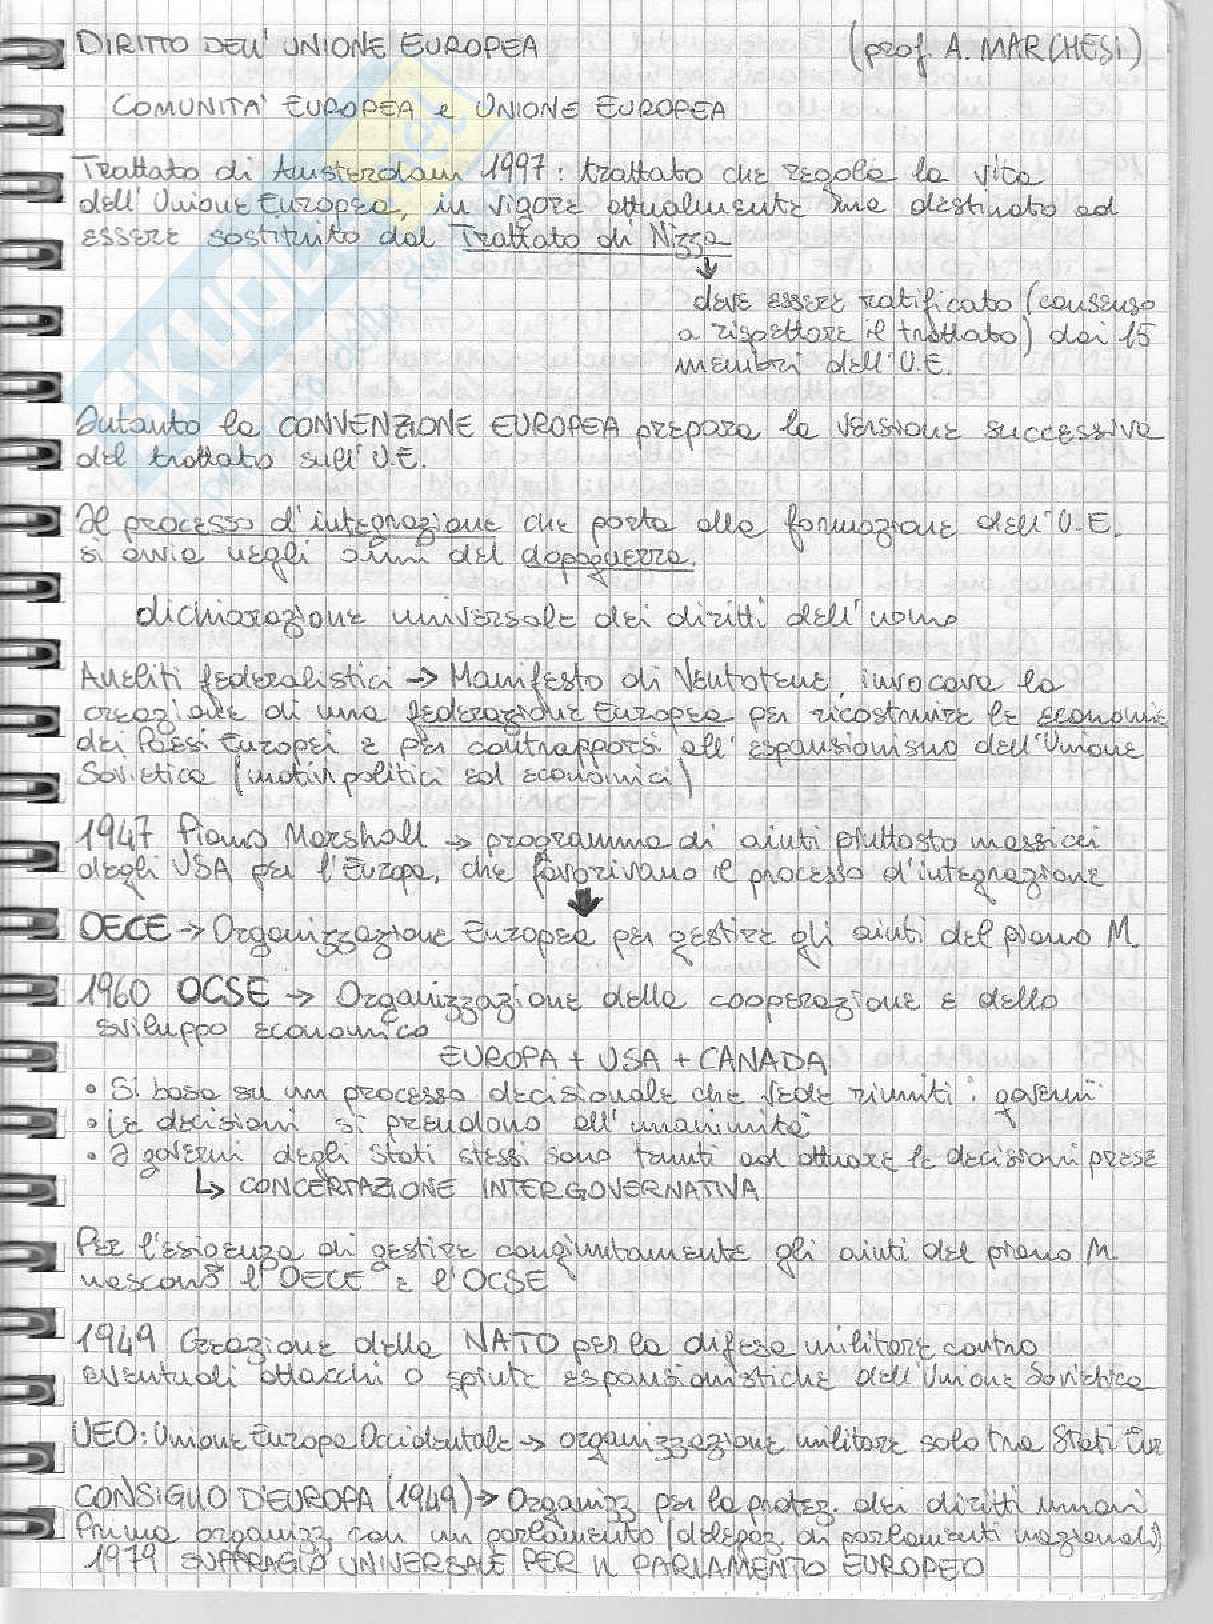 DIRITTO DELL'UNIONE EUROPEA (prof. A. MARCHESI)
COMUNITA' EUROPEA e UNIONE EUROPEA
Trattato di Amsterdam 1997: trattato che regola la vita
dell'Unione Europea, in vigore attualmente ma destinato ad
essere sostituito dal Trattato di Nizza
↓
deve essere ratificato (consenso
a rispettare il trattato) dai 15
membri dell'U.E.
Intanto la CONVENZIONE EUROPEA prepara la versione successiva
del trattato sull'U.E.
Il processo d'integrazione che porta alla formazione dell'U.E.
si avvia negli anni del dopoguerra.
dichiarazione universale dei diritti dell'uomo
Aneliti federalistici → Manifesto di Ventotene, invocava la
creazione di una federazione Europea per ricostruire le economie
dei Paesi Europei e per contrapporsi all'espansionismo dell'Unione
Sovietica (motivi politici ed economici)
1947 Piano Marshall → programma di aiuti piuttosto massicci
degli USA per l'Europa, che favorivano il processo d'integrazione
↓
OECE → Organizzazione Europea per gestire gli aiuti del piano M.
1960 OCSE → Organizzazione della cooperazione e dello
sviluppo economico
EUROPA + USA + CANADA
• Si basa su un processo decisionale che vede riuniti i governi
• Le decisioni si prendono all'unanimità
• I governi degli Stati stessi sono tenuti ad attuare le decisioni prese
↳ CONCERTAZIONE INTERGOVERNATIVA
Per l'esigenza di gestire congiuntamente gli aiuti del piano M.
nascono l'OECE e l'OCSE
1949 Creazione della NATO per la difesa militare contro
eventuali attacchi o spinte espansionistiche dell'Unione Sovietica
UEO: Unione Europa Occidentale → organizzazione militare solo tra Stati Eur
CONSIGLIO D'EUROPA (1949) → Organizz per la protez. dei diritti umani
Prima organizz con un parlamento (delegaz di parlamenti nazionali)
1979 SUFFRAGIO UNIVERSALE PER IL PARLAMENTO EUROPEO
SKUOLA.net